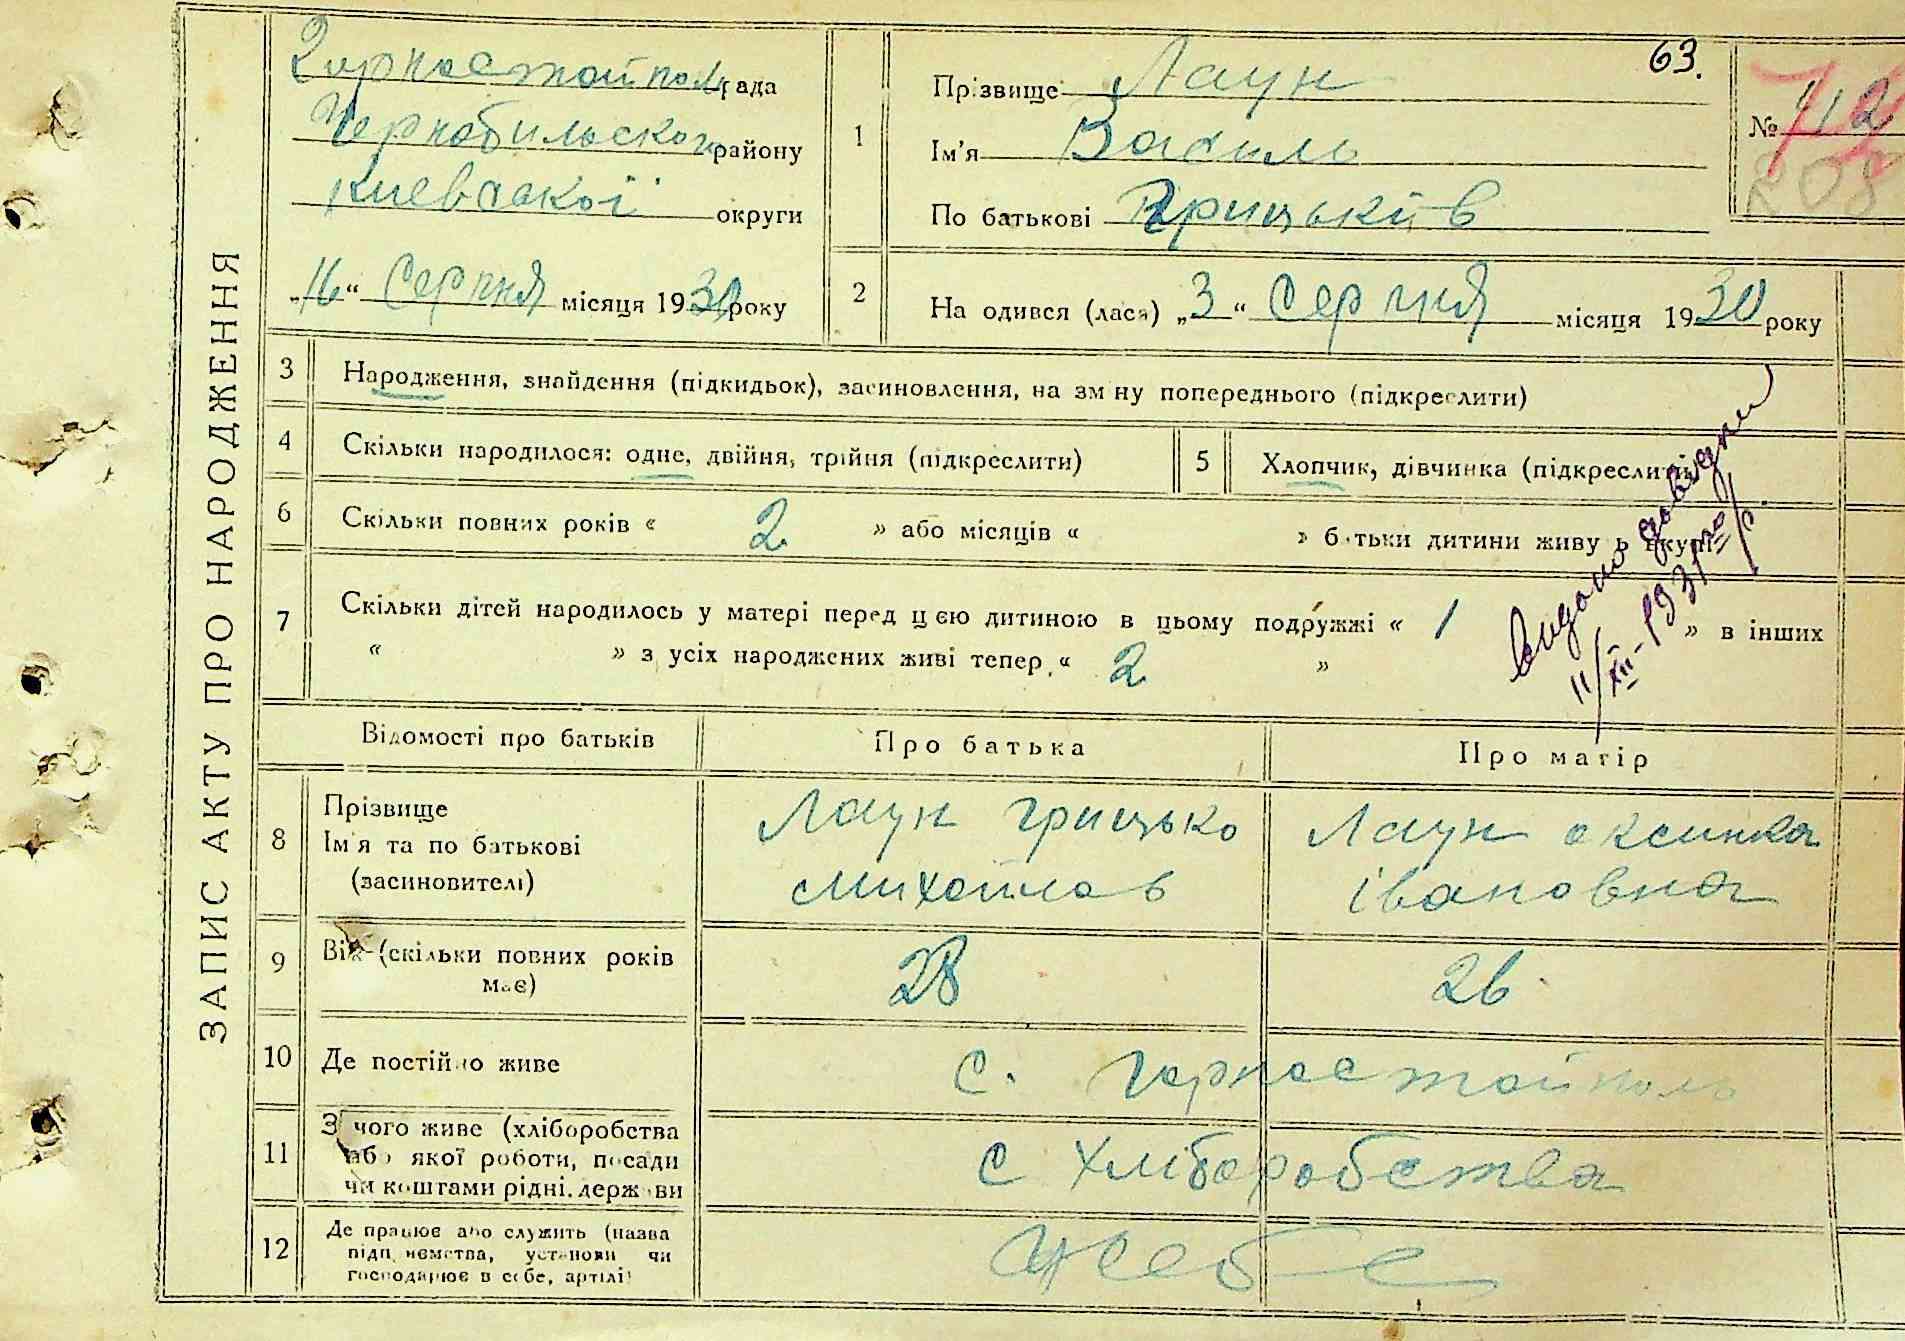 ЗАПИС АКТУ ПРО НАРОДЖЕННЯ
Горностайпол рада
Чернобильского району
Киевської округи
„16“ Серпня місяця 1930 року
63.
№ 112
208
1
Прізвище Лаун
Ім'я Василь
По батькові Грицьків
2
На одився (лася) „3“ Серпня місяця 1930 року
3 Народження, знайдення (підкидьок), засиновлення, на зм ну попереднього (підкреслити)
4 Скільки народилося: одне, двійня, трійня (підкреслити)
5 Хлопчик, дівчинка (підкреслити)
6 Скільки повних років « 2 » або місяців « » б тьки дитини живу ь вкупі
7 Скільки дітей народилось у матері перед цією дитиною в цьому подружжі « 1 » в інших
« » з усіх народжених живі тепер « 2 »
видано довідку
11/XII-1931 р.
Відомості про батьків Про батька Про матір
8 Прізвище
Ім'я та по батькові
(засиновителі)
Лаун грицько
михойлов
Лаун оксинка
івановна
9 Вік (скільки повних років
має)
28
26
10 Де постійно живе
с. Горностойполь
11 З чого живе (хліборобства
або якої роботи, посади
чи коштами рідні, держави
с хліборобства
12 Де працює або служить (назва
підп иємства, установи чи
господарює в себе, артілі